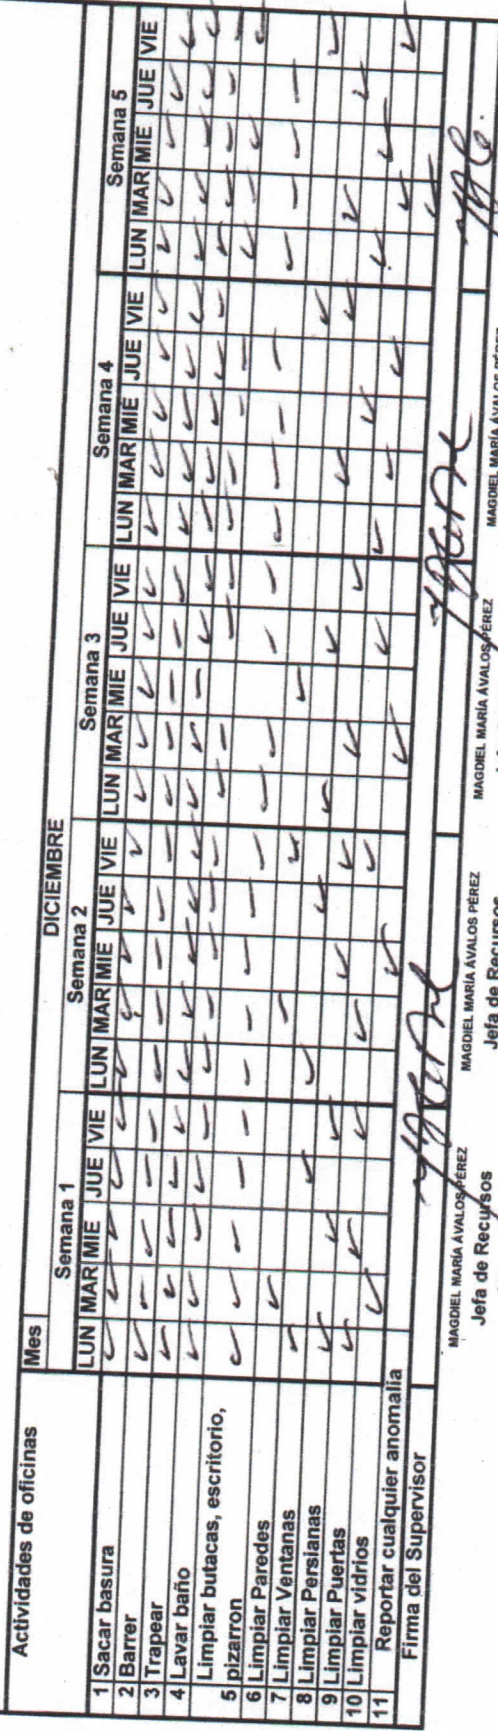 Actividades de oficinas
Mes
DICIEMBRE
Semana 1 Semana 2 Semana 3 Semana 4 Semana 5
LUN MAR MIE JUE VIE LUN MAR MIE JUE VIE LUN MAR MIE JUE VIE LUN MAR MIE JUE VIE LUN MAR MIE JUE VIE
1 Sacar basura
2 Barrer
3 Trapear
4 Lavar baño
Limpiar butacas, escritorio,
5 pizarron
6 Limpiar Paredes
7 Limpiar Ventanas
8 Limpiar Persianas
9 Limpiar Puertas
10 Limpiar vidrios
11 Reportar cualquier anomalia
Firma del Supervisor
MAGDIEL MARÍA ÁVALOS PÉREZ MAGDIEL MARÍA ÁVALOS PÉREZ MAGDIEL MARÍA ÁVALOS PÉREZ MAGDIEL MARÍA ÁVALOS PÉREZ
Jefa de Recursos Jefa de Recursos